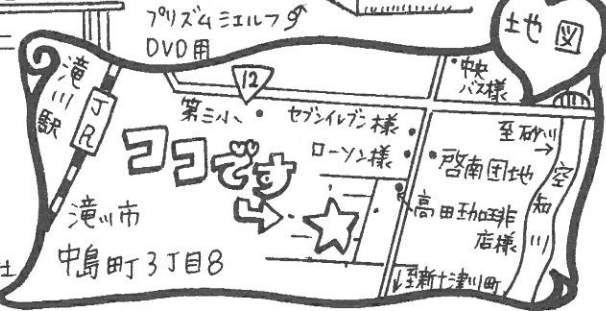 プリズムシェルフ
DVD用
地図
滝川駅
JR
12
第三小
セブンイレブン様
ローソン様
中央バス様
至砂川
啓南団地
空知川
高田珈琲店様
ココです
滝川市
中島町3丁目8
至新十津川町